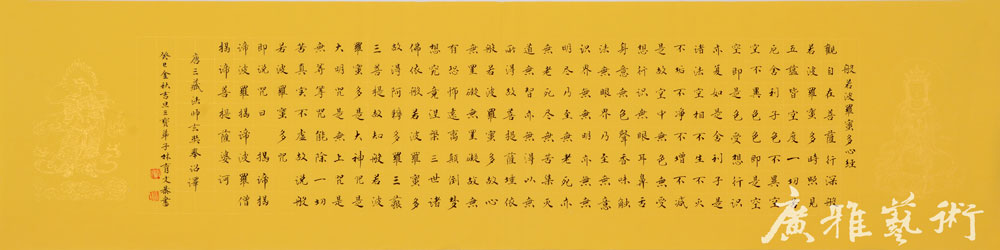 般若波羅蜜多心經
觀自在菩薩行深般
若波羅蜜多時照見
五蘊皆空度一切苦
厄舍利子色不異空
空不異色色即是空
空即是色受想行識
亦復如是舍利子是
諸法空相不生不滅
不垢不淨不增不減
是故空中無色無受
想行識無眼耳鼻舌
身意無色聲香味觸
法無眼界乃至無意
識界無無明亦無無
明盡乃至無老死亦
無老死盡無苦集滅
道無智亦無得以無
所得故菩提薩埵依
般若波羅蜜多故心
無罣礙無罣礙故無
有恐怖遠離顛倒夢
想究竟涅槃三世諸
佛依般若波羅蜜多
故得阿耨多羅三藐
三菩提故知般若波
羅蜜多是大神咒是
大明咒是無上咒是
無等等咒能除一切
苦真實不虛故說般
若波羅蜜多咒
即說咒曰 揭諦揭
諦波羅揭諦波羅僧
揭諦菩提薩婆訶
唐三藏法師玄奘奉詔譯
癸巳金秋吉旦三寶弟子林育文恭書
廣雅藝術